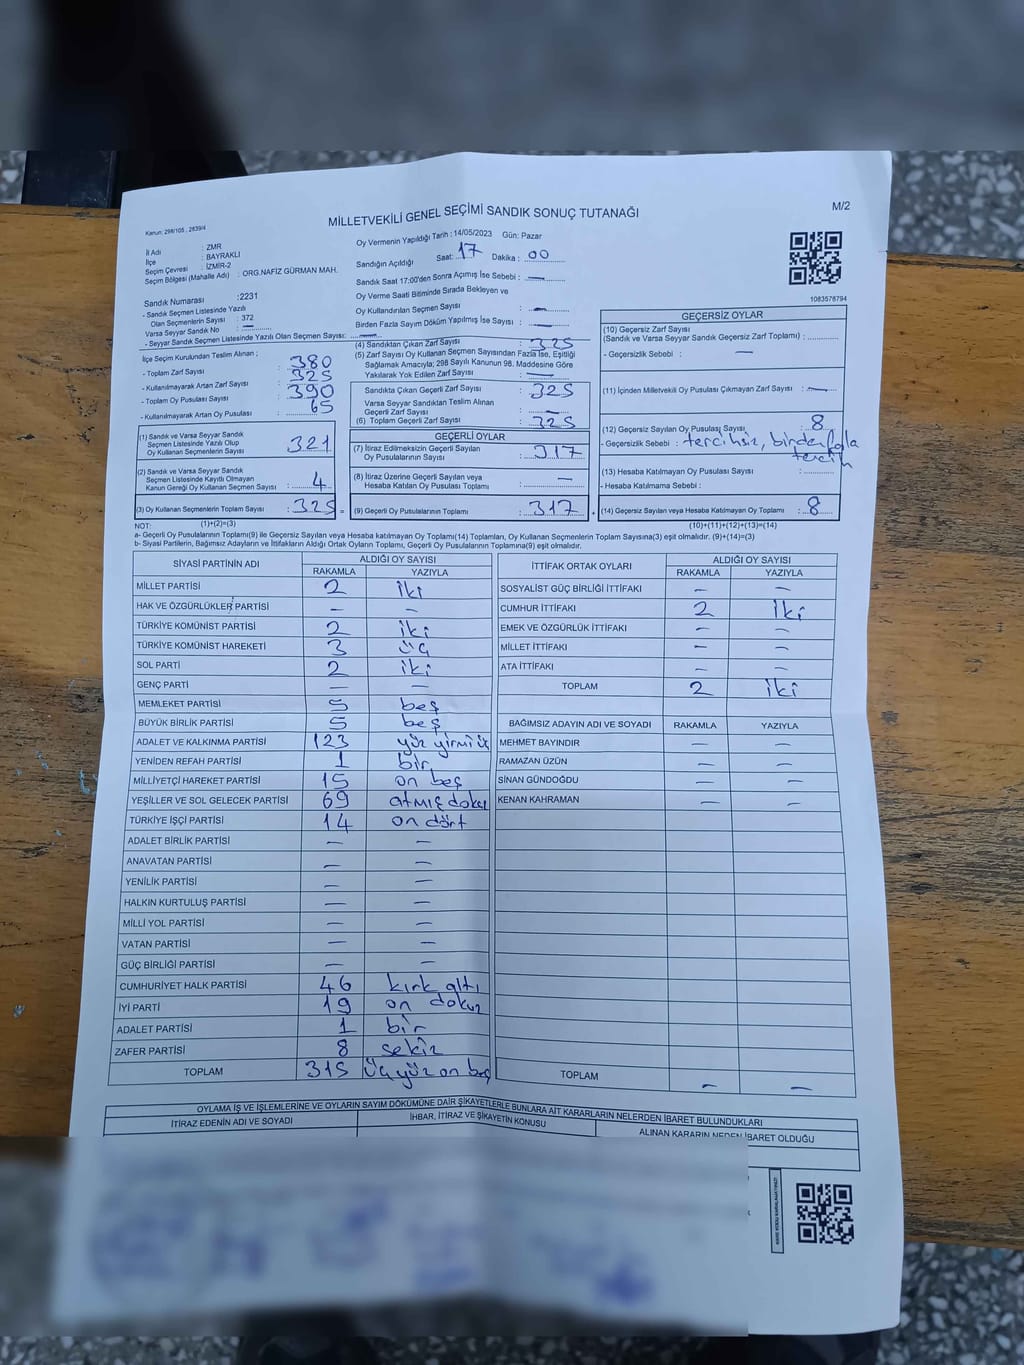 M/2
MİLLETVEKİLİ GENEL SEÇİMİ SANDIK SONUÇ TUTANAĞI
Kanun: 298/105 , 2839/4
İl Adı : ZMR
İlçe : BAYRAKLI
Seçim Çevresi : İZMİR-2
Seçim Bölgesi (Mahalle Adı) : ORG.NAFİZ GÜRMAN MAH.
Sandık Numarası :2231
- Sandık Seçmen Listesinde Yazılı
Olan Seçmenlerin Sayısı : 372
Varsa Seyyar Sandık No : —
- Seyyar Sandık Seçmen Listesinde Yazılı Olan Seçmen Sayısı: —
İlçe Seçim Kurulundan Teslim Alınan ;
- Toplam Zarf Sayısı : 380
- Kullanılmayarak Artan Zarf Sayısı : 325
- Toplam Oy Pusulası Sayısı : 390
- Kullanılmayarak Artan Oy Pusulası : 65
(1) Sandık ve Varsa Seyyar Sandık
Seçmen Listesinde Yazılı Olup
Oy Kullanan Seçmenlerin Sayısı : 321
(2) Sandık ve Varsa Seyyar Sandık
Seçmen Listesinde Kayıtlı Olmayan
Kanun Gereği Oy Kullanan Seçmen Sayısı : 4
(3) Oy Kullanan Seçmenlerin Toplam Sayısı : 325
(1)+(2)=(3)
Oy Vermenin Yapıldığı Tarih : 14/05/2023 Gün: Pazar
Sandığın Açıldığı Saat: 17 Dakika : 00
Sandık Saat 17:00'den Sonra Açımış İse Sebebi : —
Oy Verme Saati Bitiminde Sırada Bekleyen ve
Oy Kullandırılan Seçmen Sayısı : —
Birden Fazla Sayım Döküm Yapılmış İse Sayısı : —
(4) Sandıktan Çıkan Zarf Sayısı : 325
(5) Zarf Sayısı Oy Kullanan Seçmen Sayısından Fazla İse, Eşitliği
Sağlamak Amacıyla; 298 Sayılı Kanunun 98. Maddesine Göre
Yakılarak Yok Edilen Zarf Sayısı : —
Sandıkta Çıkan Geçerli Zarf Sayısı : 325
Varsa Seyyar Sandıktan Teslim Alınan
Geçerli Zarf Sayısı : —
(6) Toplam Geçerli Zarf Sayısı : 325
GEÇERLİ OYLAR
(7) İtiraz Edilmeksizin Geçerli Sayılan
Oy Pusulalarının Sayısı : 317
(8) İtiraz Üzerine Geçerli Sayılan veya
Hesaba Katılan Oy Pusulası Toplamı : —
(9) Geçerli Oy Pusulalarının Toplamı : 317
1083578794
GEÇERSİZ OYLAR
(10) Geçersiz Zarf Sayısı
(Sandık ve Varsa Seyyar Sandık Geçersiz Zarf Toplamı) :
- Geçersizlik Sebebi : —
(11) İçinden Milletvekili Oy Pusulası Çıkmayan Zarf Sayısı : —
(12) Geçersiz Sayılan Oy Pusulası Sayısı : 8
- Geçersizlik Sebebi : tercihsiz, birden fazla
tercih
(13) Hesaba Katılmayan Oy Pusulası Sayısı :
- Hesaba Katılmama Sebebi :
(14) Geçersiz Sayılan veya Hesaba Katılmayan Oy Toplamı : 8
(10)+(11)+(12)+(13)=(14)
NOT:
a- Geçerli Oy Pusulalarının Toplamı(9) ile Geçersiz Sayılan veya Hesaba katılmayan Oy Toplamı(14) Toplamları, Oy Kullanan Seçmenlerin Toplam Sayısına(3) eşit olmalıdır. (9)+(14)=(3)
b- Siyasi Partilerin, Bağımsız Adayların ve İttifakların Aldığı Ortak Oyların Toplamı, Geçerli Oy Pusulalarının Toplamına(9) eşit olmalıdır.
SİYASİ PARTİNİN ADI ALDIĞI OY SAYISI
RAKAMLA YAZIYLA
MİLLET PARTİSİ 2 iki
HAK VE ÖZGÜRLÜKLER PARTİSİ — —
TÜRKİYE KOMÜNİST PARTİSİ 2 iki
TÜRKİYE KOMÜNİST HAREKETİ 3 üç
SOL PARTİ 2 iki
GENÇ PARTİ — —
MEMLEKET PARTİSİ 5 beş
BÜYÜK BİRLİK PARTİSİ 5 beş
ADALET VE KALKINMA PARTİSİ 123 yüz yirmi üç
YENİDEN REFAH PARTİSİ 1 bir
MİLLİYETÇİ HAREKET PARTİSİ 15 on beş
YEŞİLLER VE SOL GELECEK PARTİSİ 69 atmış dokuz
TÜRKİYE İŞÇİ PARTİSİ 14 on dört
ADALET BİRLİK PARTİSİ — —
ANAVATAN PARTİSİ — —
YENİLİK PARTİSİ — —
HALKIN KURTULUŞ PARTİSİ — —
MİLLİ YOL PARTİSİ — —
VATAN PARTİSİ — —
GÜÇ BİRLİĞİ PARTİSİ — —
CUMHURİYET HALK PARTİSİ 46 kırk altı
İYİ PARTİ 19 on dokuz
ADALET PARTİSİ 1 bir
ZAFER PARTİSİ 8 sekiz
TOPLAM 315 üç yüz on beş
İTTİFAK ORTAK OYLARI ALDIĞI OY SAYISI
RAKAMLA YAZIYLA
SOSYALİST GÜÇ BİRLİĞİ İTTİFAKI — —
CUMHUR İTTİFAKI 2 iki
EMEK VE ÖZGÜRLÜK İTTİFAKI — —
MİLLET İTTİFAKI — —
ATA İTTİFAKI — —
TOPLAM 2 iki
BAĞIMSIZ ADAYIN ADI VE SOYADI RAKAMLA YAZIYLA
MEHMET BAYINDIR — —
RAMAZAN ÜZÜN — —
SİNAN GÜNDOĞDU — —
KENAN KAHRAMAN — —
TOPLAM — —
OYLAMA İŞ VE İŞLEMLERİNE VE OYLARIN SAYIM DÖKÜMÜNE DAİR ŞİKAYETLERLE BUNLARA AİT KARARLARIN NELERDEN İBARET BULUNDUKLARI
İTİRAZ EDENİN ADI VE SOYADI İHBAR, İTİRAZ VE ŞİKAYETİN KONUSU ALINAN KARARIN NEDEN İBARET OLDUĞU